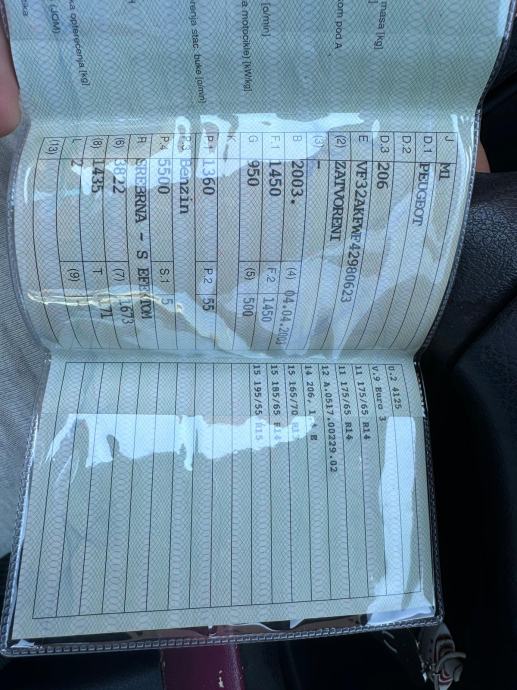 masa [kg]
kom pod A
[o/min]
a motocikle) [kW/kg]
renja stac. buke [o/min]
ka opterećenja [kg]
(UOM)
J M1
D.1 PEUGEOT
D.2
D.3 206
E VF32AKFWF42980623
(2) ZATVORENI
(3) -
B 2003. (4) 04.04.2003
F.1 1450 F.2 1450
G 950 (5) 500
K
P.1 1360 P.2 55
P.3 Benzin
P.4 5500 S.1 5
R SREBRNA - S EFEKTOM
(6) 3822 (7) 1673
(8) 1435 T 171
L 2 (9)
(13)
U.2 4125
V.9 Euro 3
11 175/65 R14
11 175/65 R14
12 A.0517.00229.02
14 206, 1.4 E
15 165/70 R13
15 185/65 R14
15 195/55 R15